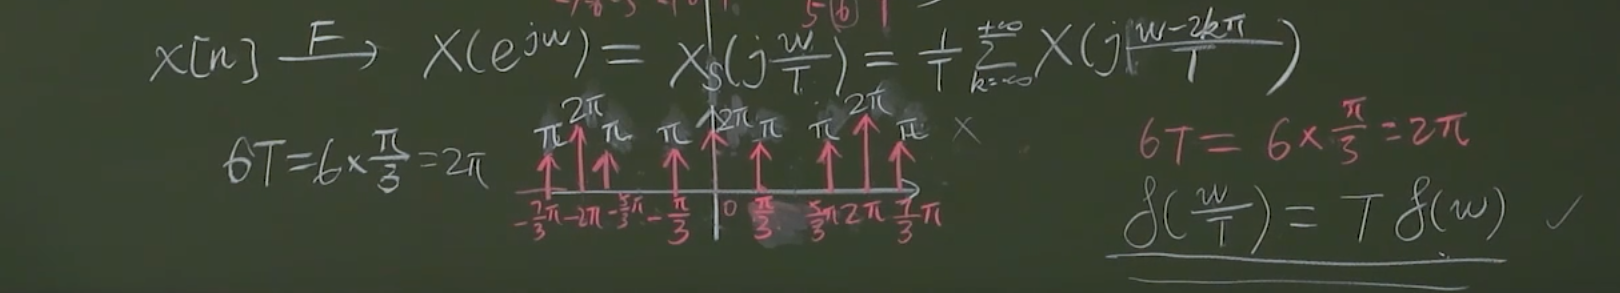 x[n] —F→ X(e^{jw}) = X_S(j w/T) = 1/T Σ_{k=-∞}^{+∞} X(j (w-2kπ)/T)
6T=6×π/3=2π
π 2π π π 2π π π 2π π ×
-7/3π -2π -5/3π -π/3 0 π/3 5/3π 2π 7/3π
6T= 6×π/3=2π
δ(w/T) = T δ(w) ✓